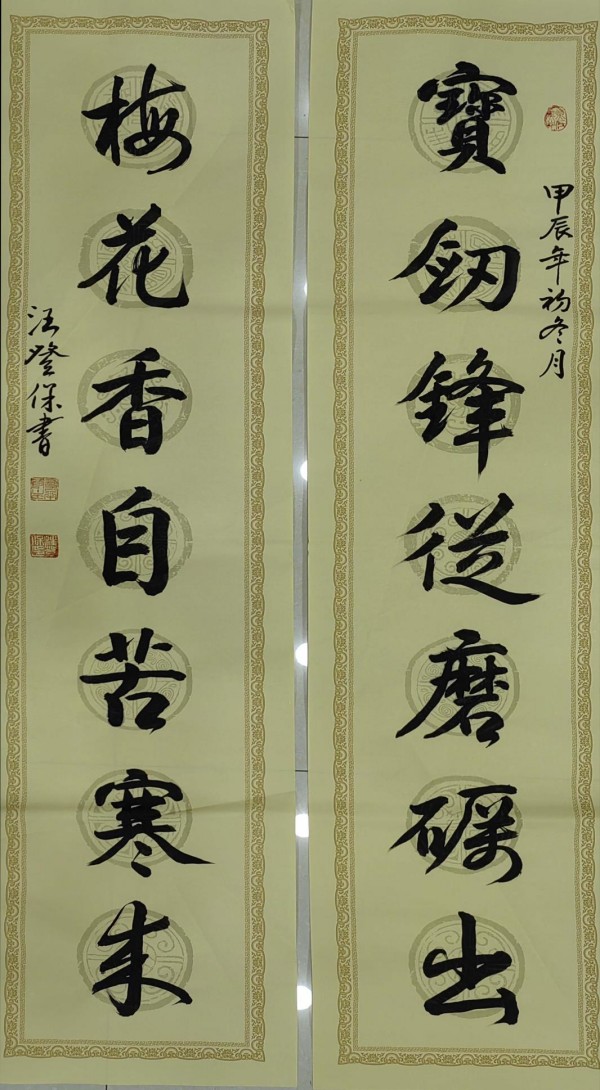 寶劔鋒從磨礪出
甲辰年初冬月
梅花香自苦寒來
汪登保書